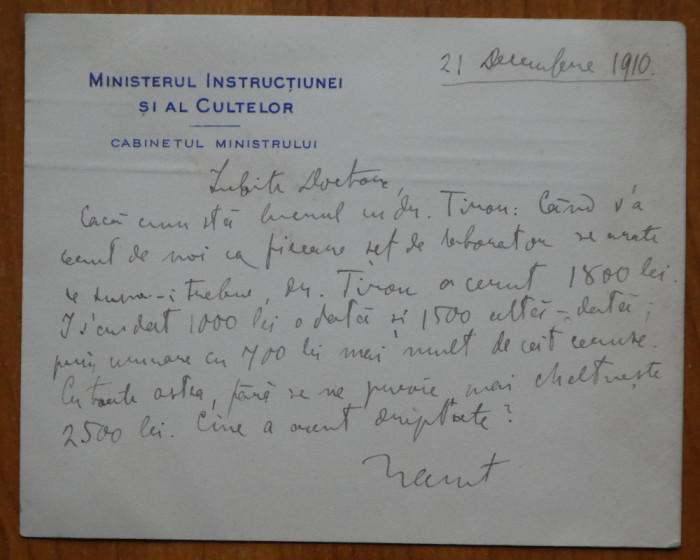 21 Decembrie 1910.
MINISTERUL INSTRUCȚIUNEI
ȘI AL CULTELOR
CABINETUL MINISTRULUI
Iubite Doctore,
cum stă lucrul cu dr. Tiron: Când s'a
cerut de noi ca fiecare șef de laborator se arate
ce suma-i trebue, dr. Tiron a cerut 1800 lei.
I s'au dat 1000 lei o dată și 1500 altă-dată;
prin urmare cu 700 lei mai mult de cât ceruse.
Cu toate astea, fără se ne mai cheltuește
2500 lei. Cine a avut dreptate?